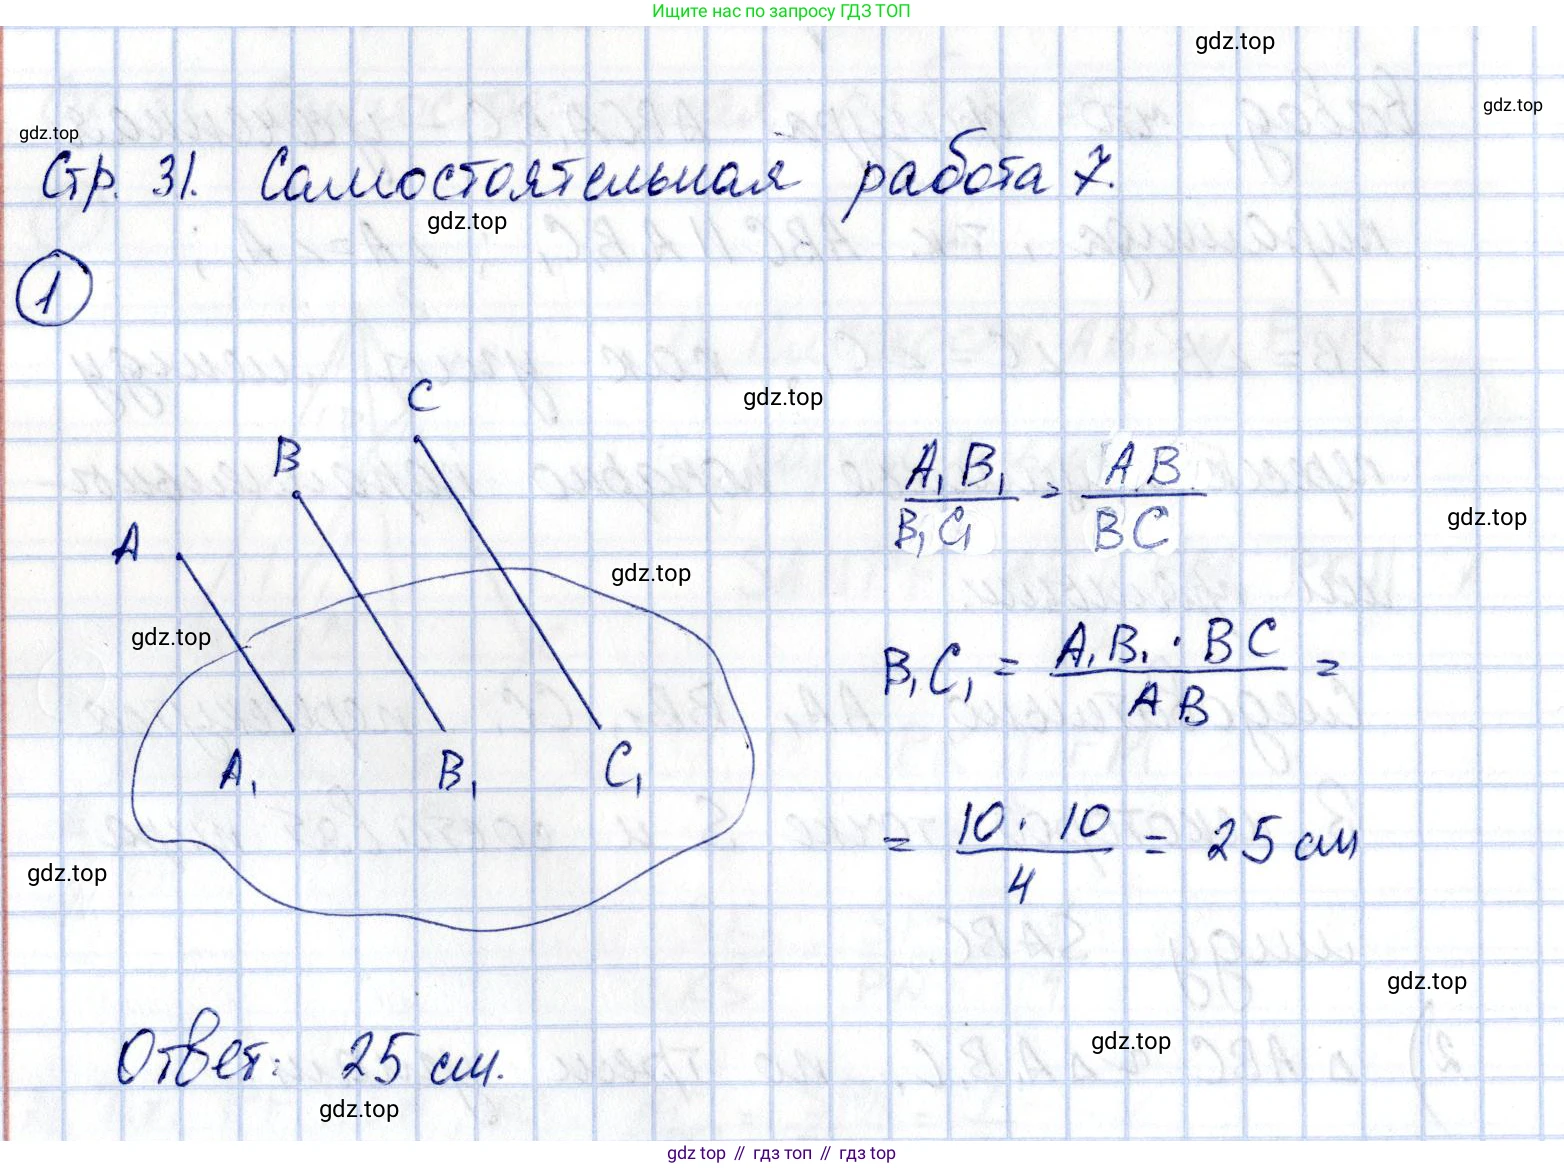 Ищите нас по запросу ГДЗ ТОП
gdz.top
gdz.top
gdz.top
Стр. 31. Самостоятельная работа 7.
gdz.top
1
C
gdz.top
B
A₁B₁ / B₁C₁ = AB / BC
A
gdz.top
gdz.top
gdz.top
B₁C₁ = A₁B₁ · BC / AB =
A₁ B₁ C₁
= 10 · 10 / 4 = 25 см
gdz.top
gdz.top
gdz.top
Ответ: 25 см.
gdz.top
gdz.top // гдз топ // гдз.top